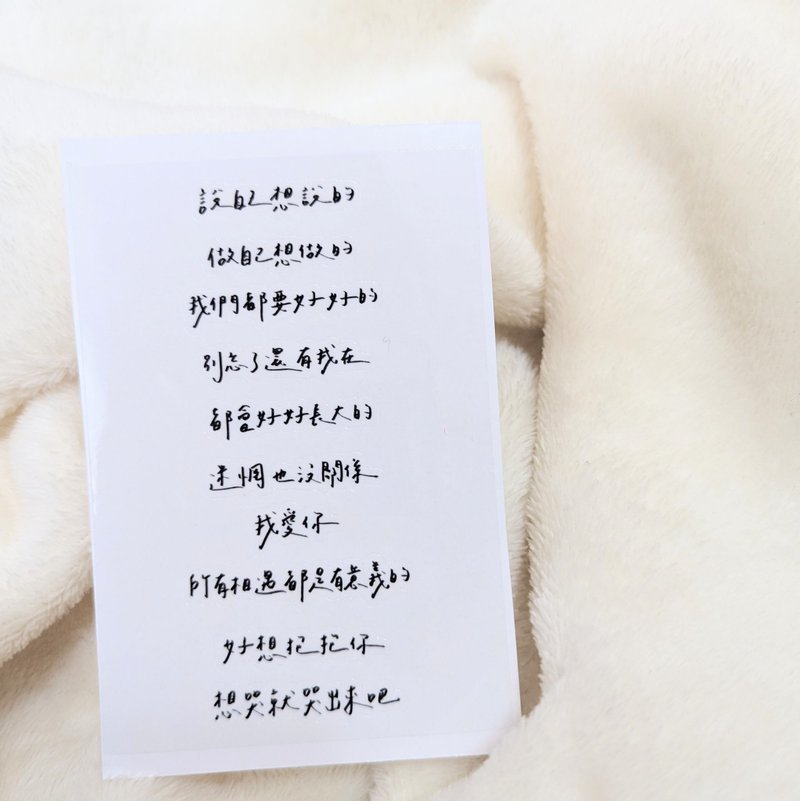 說自己想說的
做自己想做的
我們都要好好的
別忘了還有我在
都會好好長大的
迷惘也沒關係
我愛你
所有相遇都是有意義的
好想抱抱你
想哭就哭出來吧